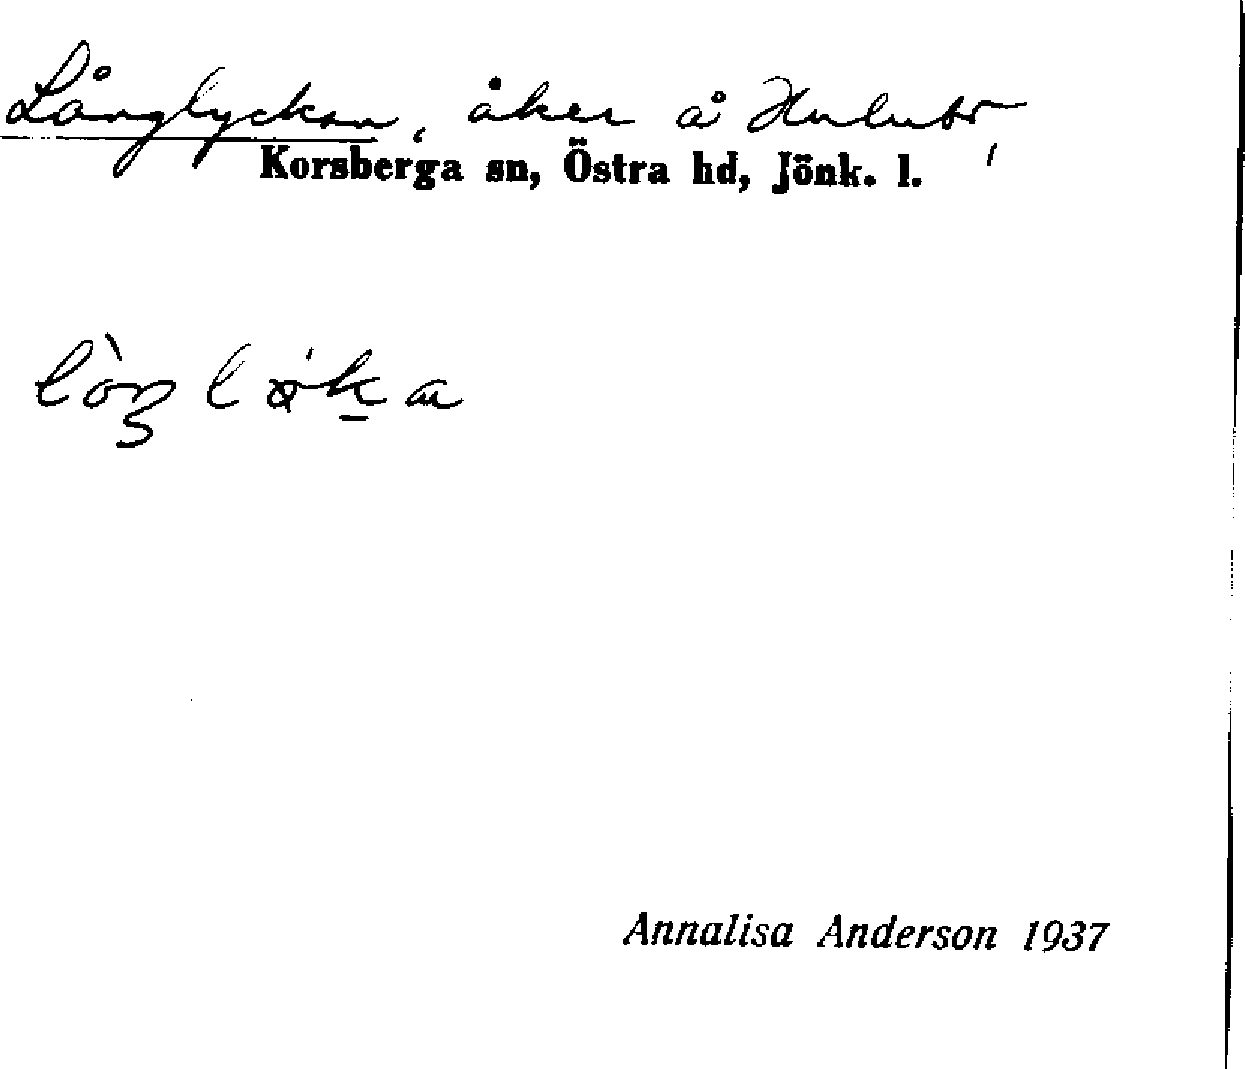 Långlyckan, åker å
Korsberga sn, Östra hd, Jönk. l.
Annalisa Anderson 1937